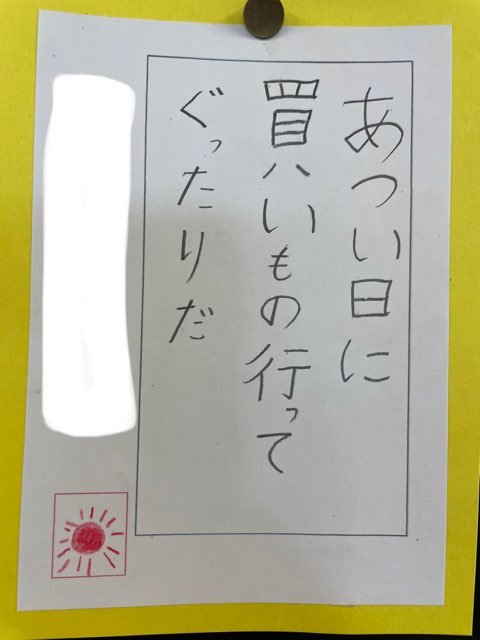 あつい日に
買いもの行って
ぐったりだ